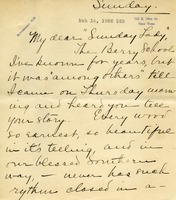 Sunday.
Feb 14, 1926
My dear "Sunday Lady",
The Berry School
I've known for years, but
it was "among others" till
I came on Thursday morn
ing and heard you tell
your story. Every word
so earnest, so beautiful
in its telling, and in
our blessed southern
way, — never has such
rythm closed in a-